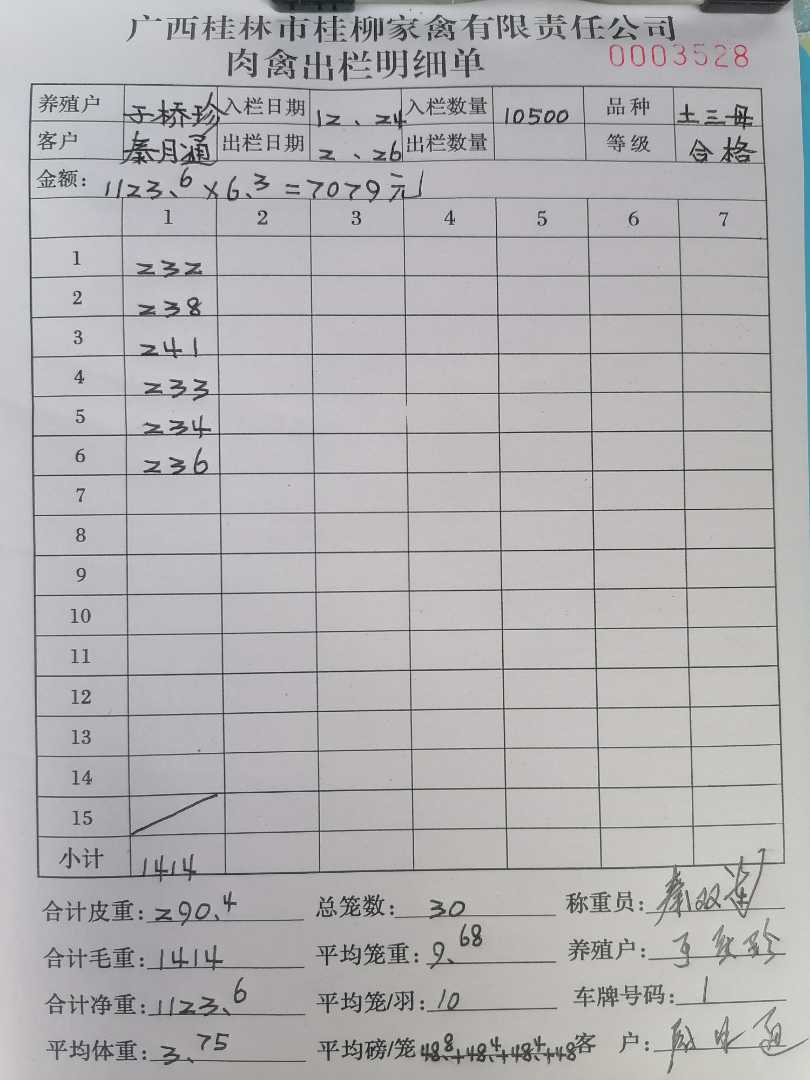 广西桂林市桂柳家禽有限责任公司
肉禽出栏明细单 0003528
养殖户 于桥珍 入栏日期 12、24 入栏数量 10500 品种 土三母
客户 秦月通 出栏日期 2、26 出栏数量 等级 合格
金额: 1123.6×6.3=7079元
1 2 3 4 5 6 7
1 232
2 238
3 241
4 233
5 234
6 236
7
8
9
10
11
12
13
14
15
小计 1414
合计皮重: 290.4 总笼数: 30 称重员: 秦双
合计毛重: 1414 平均笼重: 9.68 养殖户:
合计净重: 1123.6 平均笼/羽: 10 车牌号码: 1
平均体重: 3.75 平均磅/笼 48.8+48.4+48.4+48 客 户: